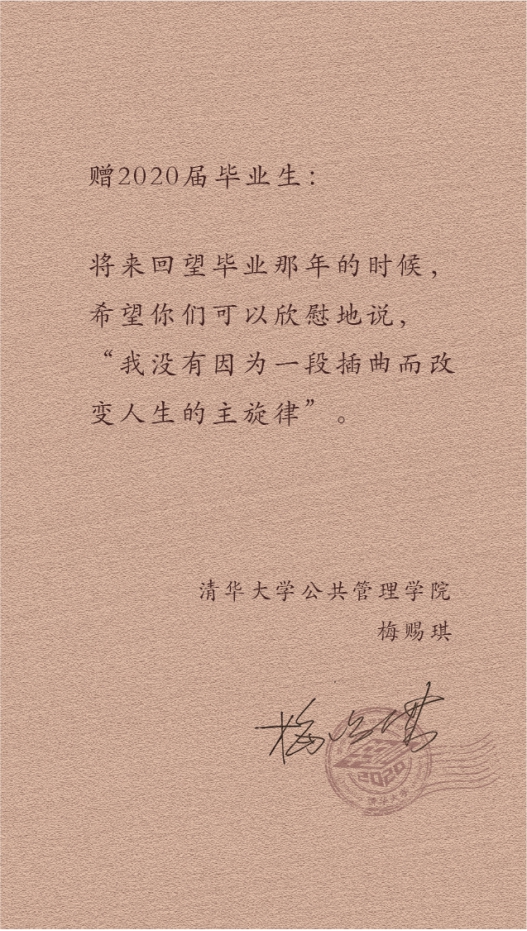 赠2020届毕业生：
将来回望毕业那年的时候，
希望你们可以欣慰地说，
“我没有因为一段插曲而改
变人生的主旋律”。
清华大学公共管理学院
梅赐琪
梅赐琪
2020
清华大学